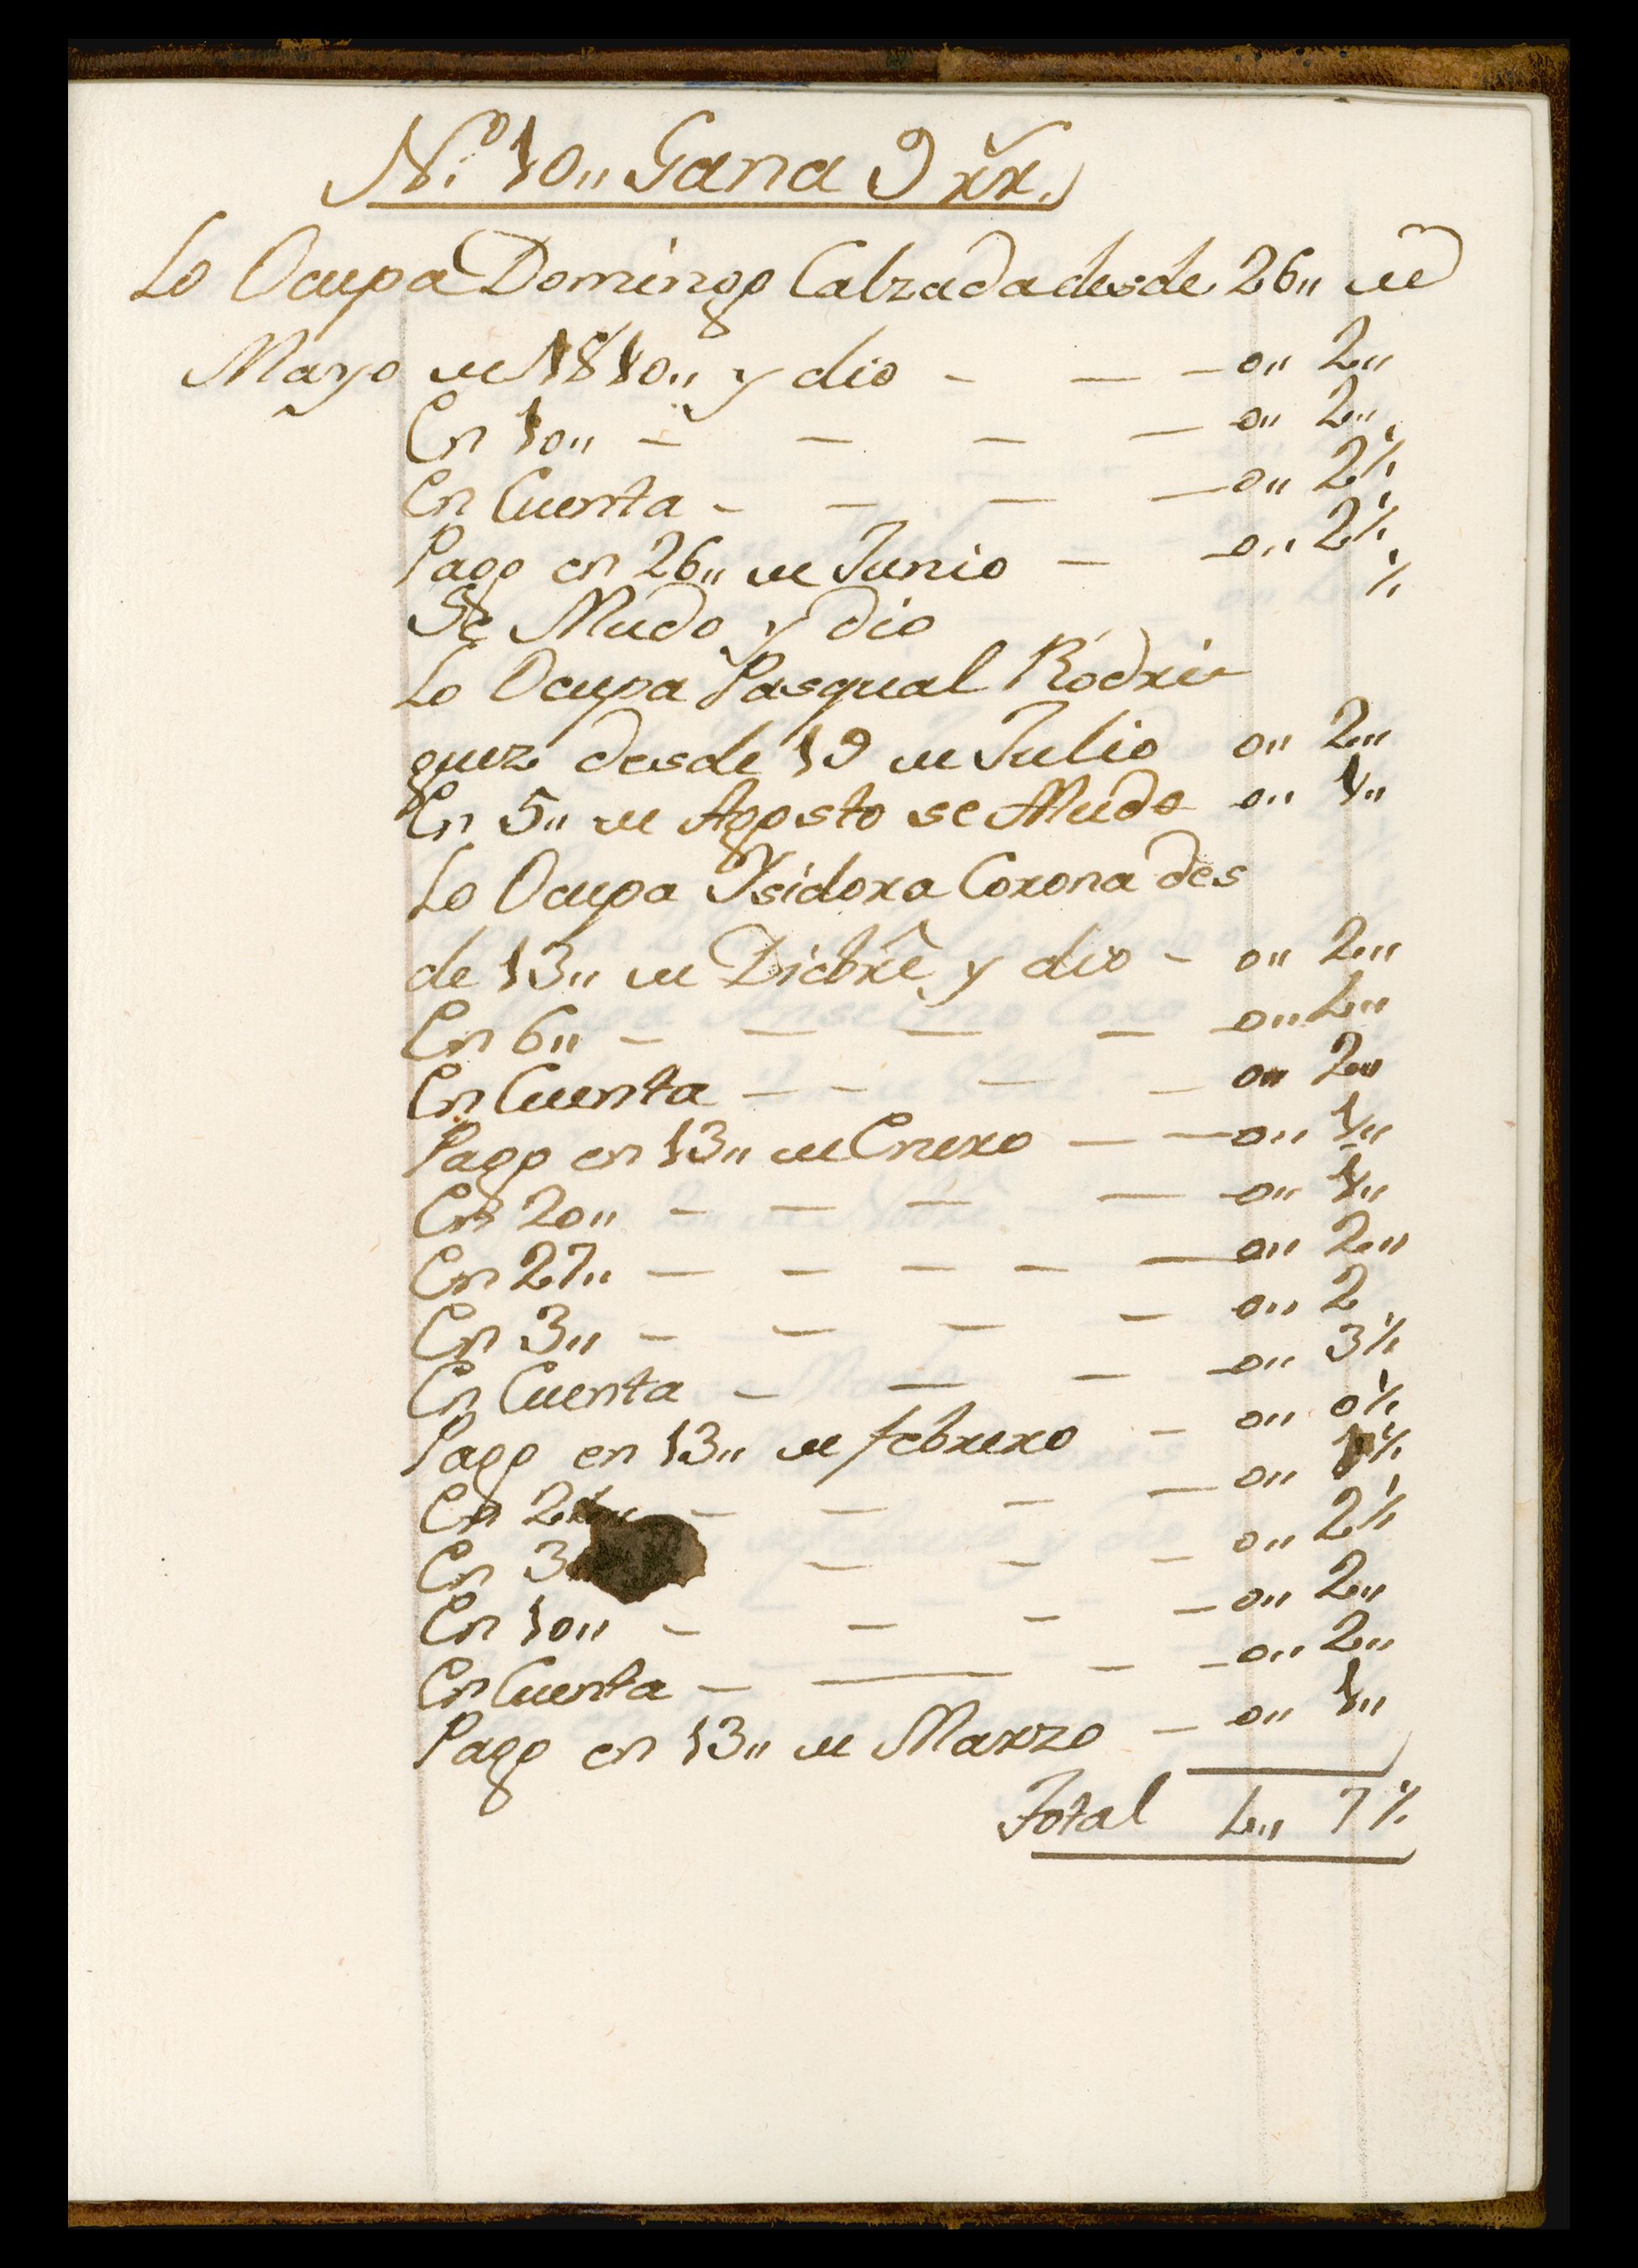 N.º 10,, Gana 9 rr.
Lo Ocupa Domingo Calzada desde 26,, de
Mayo de 1810,, y dio - - - 0,, 2,,
En 10,, - - - - 0,, 2,,
En Cuenta - - - - 0,, 2½
Pago en 26,, de Junio - - 0,, 2½
Se Mudo y dio ½
Lo Ocupa Pasqual Rodri
guez desde 19 de Julio 0,, 2,,
En 5,, de Agosto se Mudo 0,, 1,,
Lo Ocupa Ysidora Corona des
de 13,, de Dicbre y dio - 0,, 2,,
En 6,, - - - - 0,, 2,,
En Cuenta - - - - 0,, 2,,
Pago en 13,, de Enero - - 0,, 1,,
En 20,, - - - - 0,, 1,,
En 27,, - - - - - 0,, 2,,
En 3,, - - - - 0,, 2
En Cuenta - - - - 0,, 3½
Pago en 13,, de febrero - 0,, 0½
En - - - - 0,, ½
En 3 - - - 0,, 2½
En 10,, - - - - 0,, 2,,
En Cuenta - - - - 0,, 2,,
Pago en 13,, de Marzo - 0,, 1,,
Total 7½